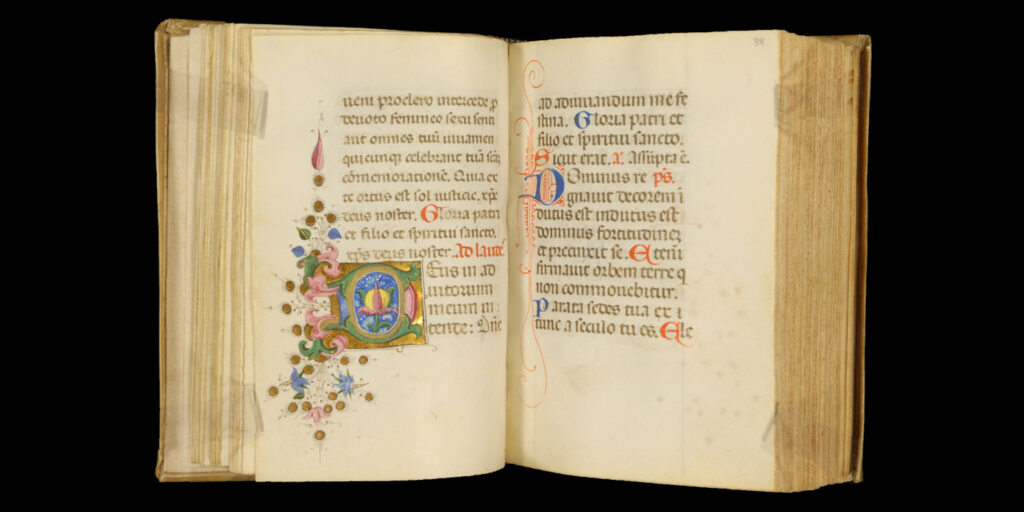 ueni pro clero intercede p
deuoto femineo sexu senti
ant omnes tuū iuuamen
quicunqꝫ celebrant tuā scā
cōmemorationē. Quia ex
te ortus est sol iusticie. xp̄s
deus noster. Gloria patri
et filio et spiritui sancto.
xp̄s deus noster. Ad laudē.
Deus in ad
iutorium
meum in
tende: Dn̄e
38
ad adiuuandum me fe
stina. Gloria patri et
filio et spiritui sancto.
Sicut erat. a. Assūpta ē.
Dominus re ps.
gnauit decorem ī
dutus est indutus est
dominus fortitudinez
et precinxit se. Eteni
firmauit orbem terre q
non commouebitur.
Parata sedes tua ex i
tunc a seculo tu es. Ele